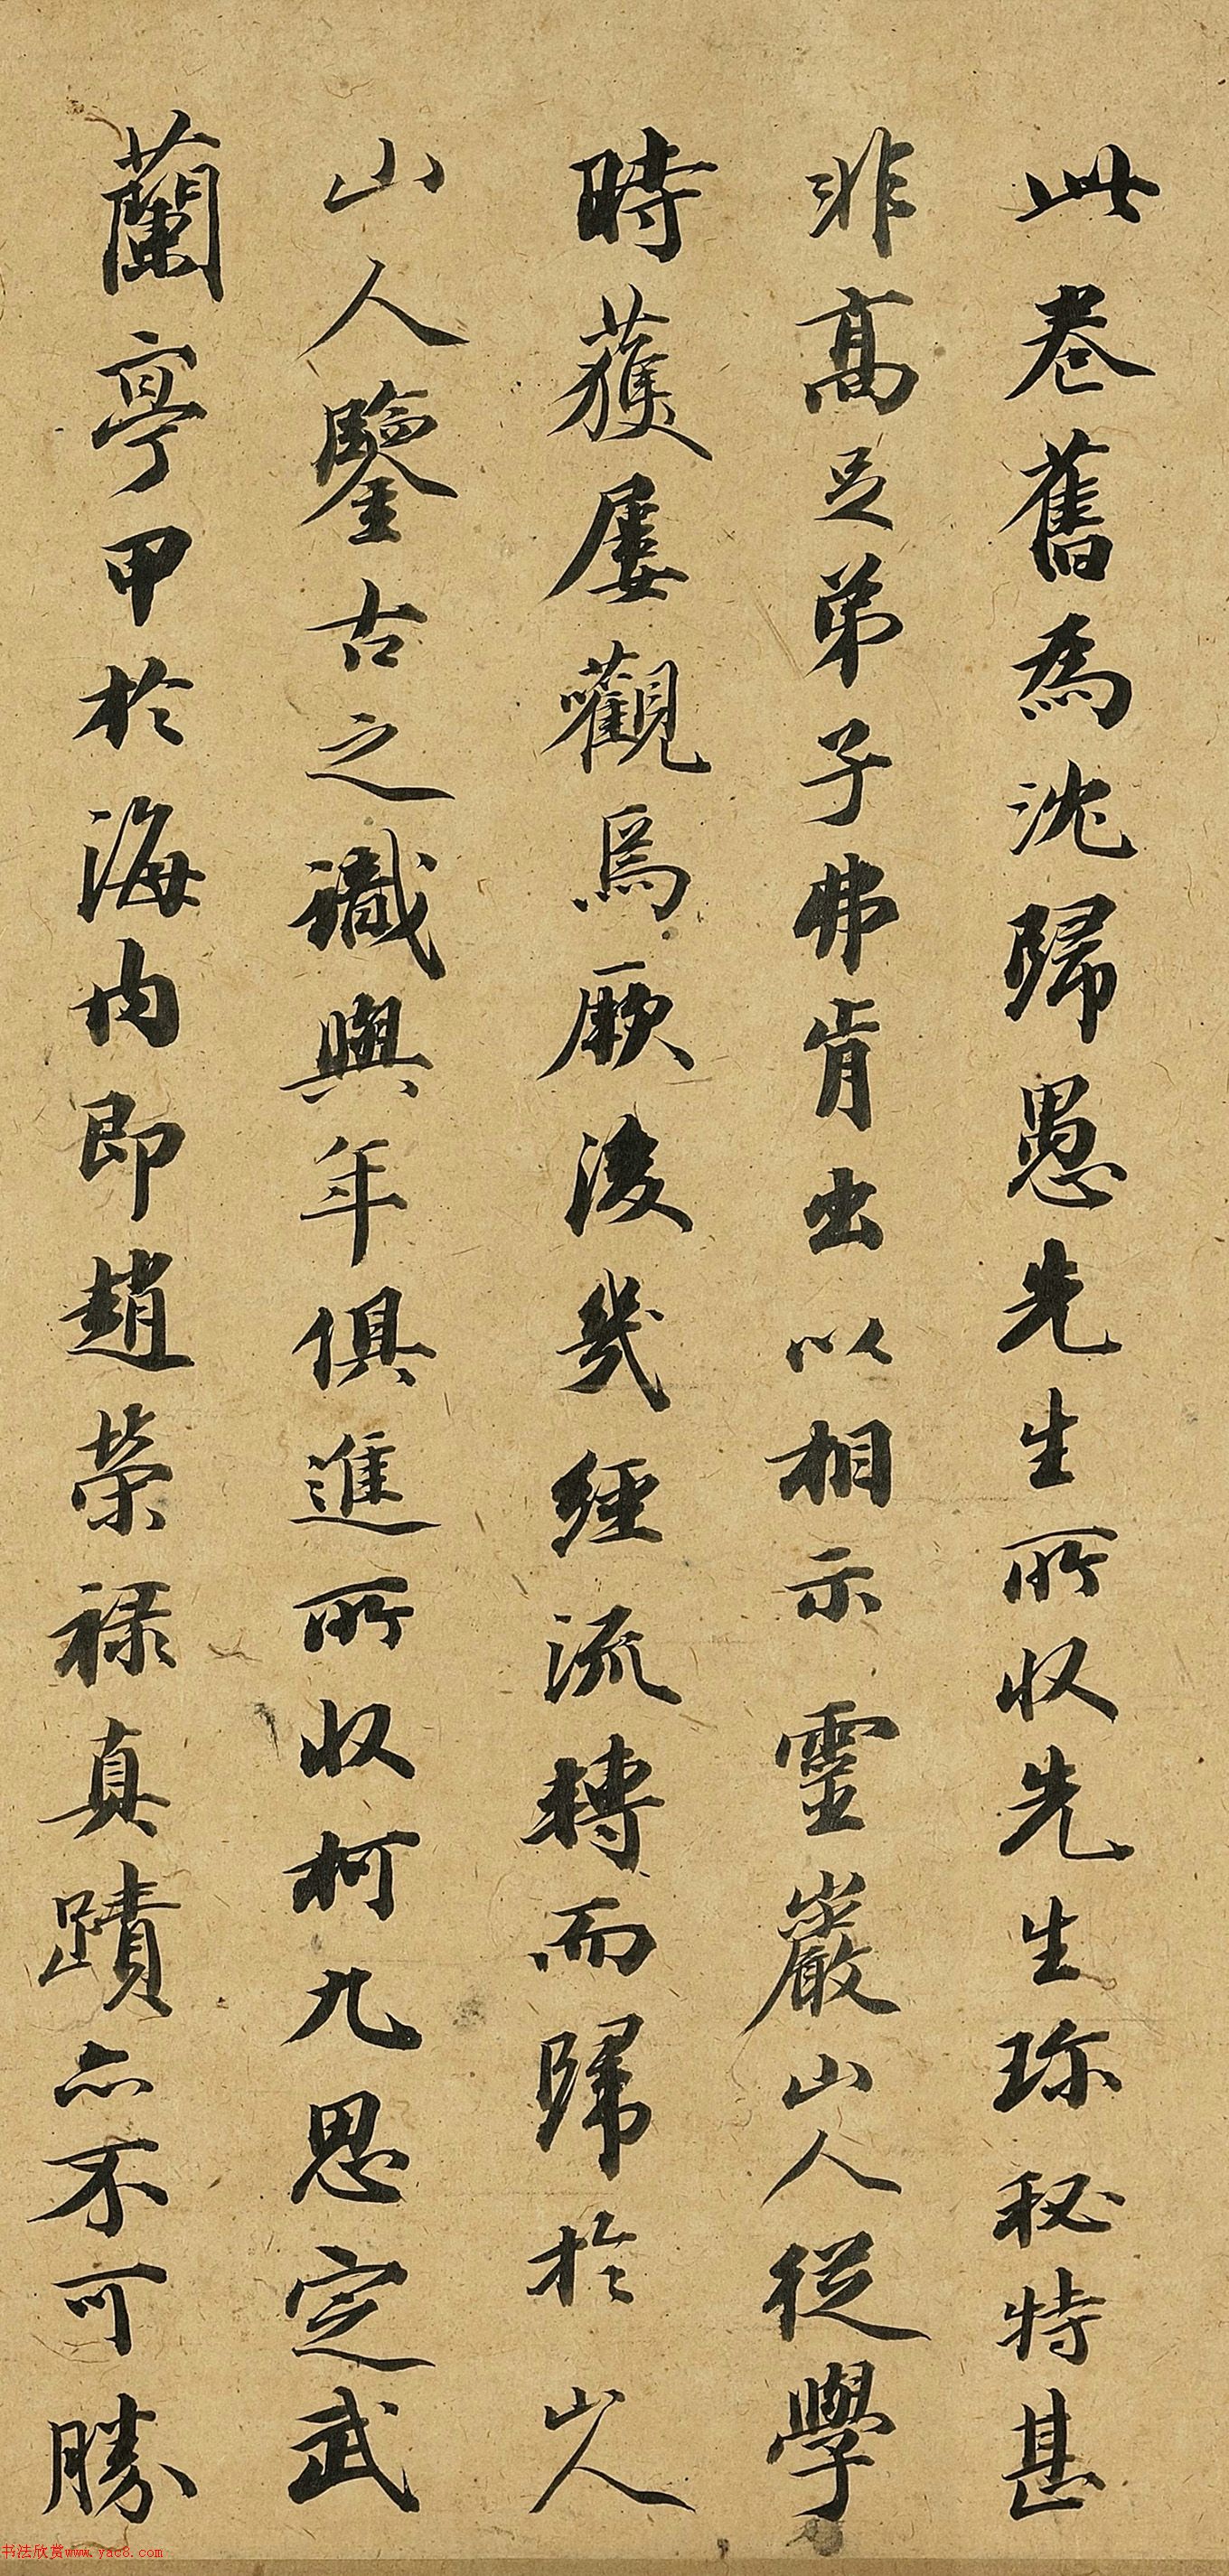 此卷舊為沈歸愚先生所收先生珎秘特甚
非高足弟子弗肯出以相示靈巖山人從學
時獲屢觀焉厥後幾經流轉而歸於山人
山人鑒古之識與年俱進所收柯九思定武
蘭亭甲於海內即趙榮祿真蹟亦不可勝
书法欣赏www.yac8.com